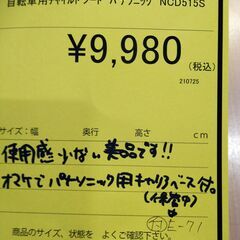 自転車用チャイルドシート パナソニック NCD515S
¥9,980
(税込)
210725
サイズ:幅 奥行 高さ cm
使用感少ない美品です!!
オマケでパナソニック用キャリアベース付。
(保管中
付E-71
商品のサイズ、状態を よくご確認下さい。